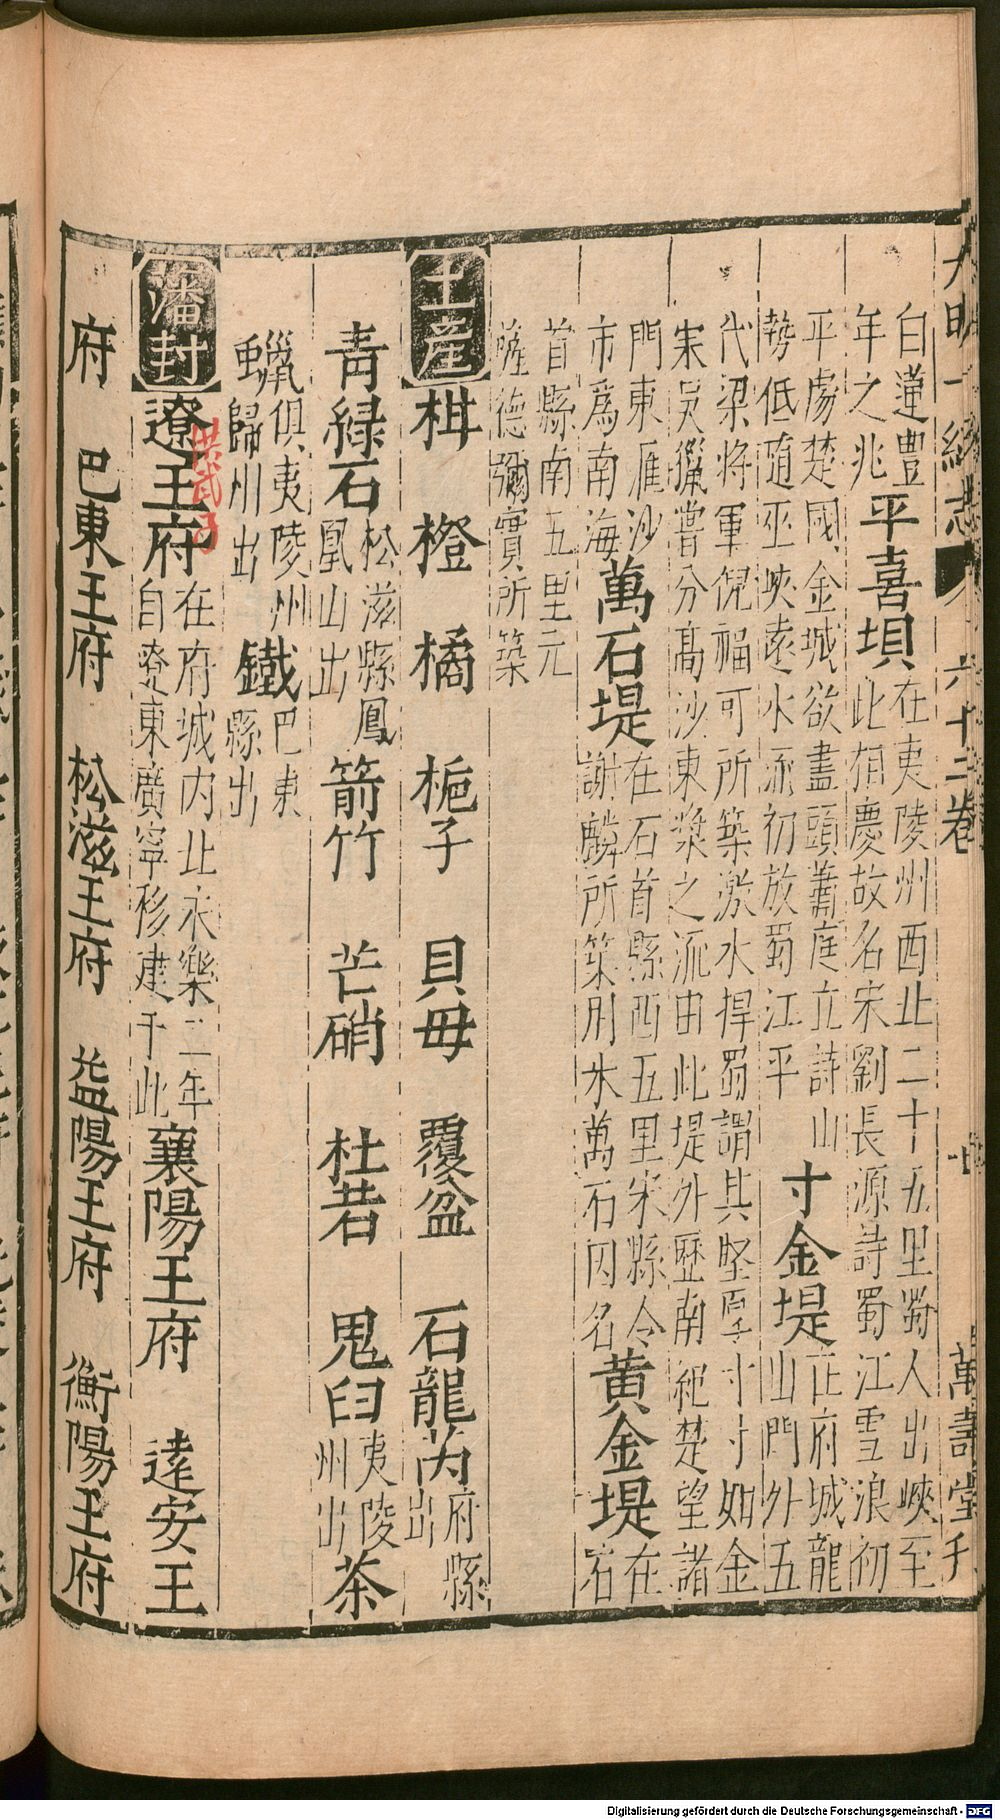 大明一統志 六十二卷 萬壽堂刊
白蓮豊
年之兆
平喜垻
在夷陵州西北二十五里蜀人出峽至
此相慶故名宋劉長源詩蜀江雪浪初
平處楚國金城欲盡頭蕭庭立詩山
勢低随巫峽遠水流初放蜀江平
寸金堤
在府城龍
山門外五
代梁將軍倪福可所築激水捍蜀謂其堅厚寸寸如金
宋吳獵嘗分髙沙東漿之流由此堤外歷南紀楚望諸
門東雁沙
市爲南海
萬石堤
在石首縣西五里宋縣令
謝麟所築用米萬石因名
黄金堤
在石
首縣南五里元
薩德彌實所築
土產
柑 橙 橘 梔子 貝母 覆盆 石龍芮
府縣
出
青緑石
松滋縣鳳
凰山出
箭竹 芒硝 杜若 鬼臼
夷陵
州出
茶
蠟俱夷陵州
蠟歸州出
鐵
巴東
縣出
藩封
遼王府
洪武子
在府城内北永樂二年
自遼東廣寧移建于此
襄陽王府 遠安王
府 巴東王府 松滋王府 益陽王府 衡陽王府
Digitalisierung gefördert durch die Deutsche Forschungsgemeinschaft - DFG